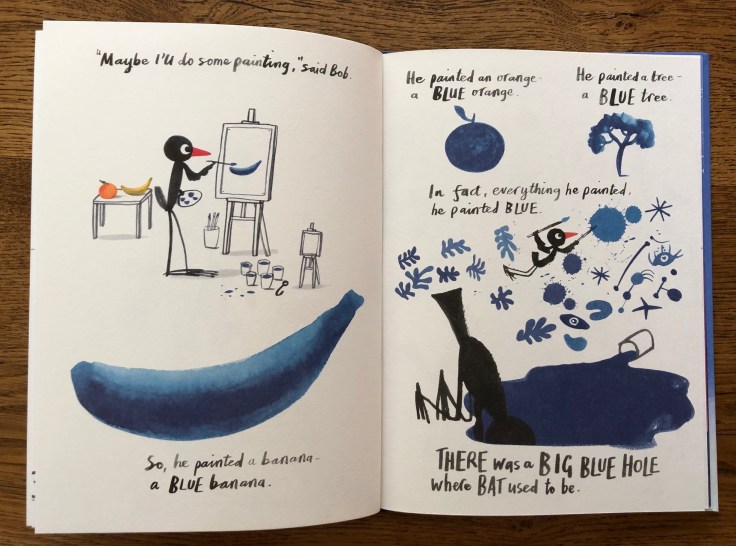 "Maybe I'll do some painting," said Bob.
So, he painted a banana-
a BLUE banana.
He painted an orange-
a BLUE orange.
He painted a tree-
a BLUE tree.
In fact, everything he painted,
he painted BLUE.
THERE was a BIG BLUE HOLE
where BAT used to be.